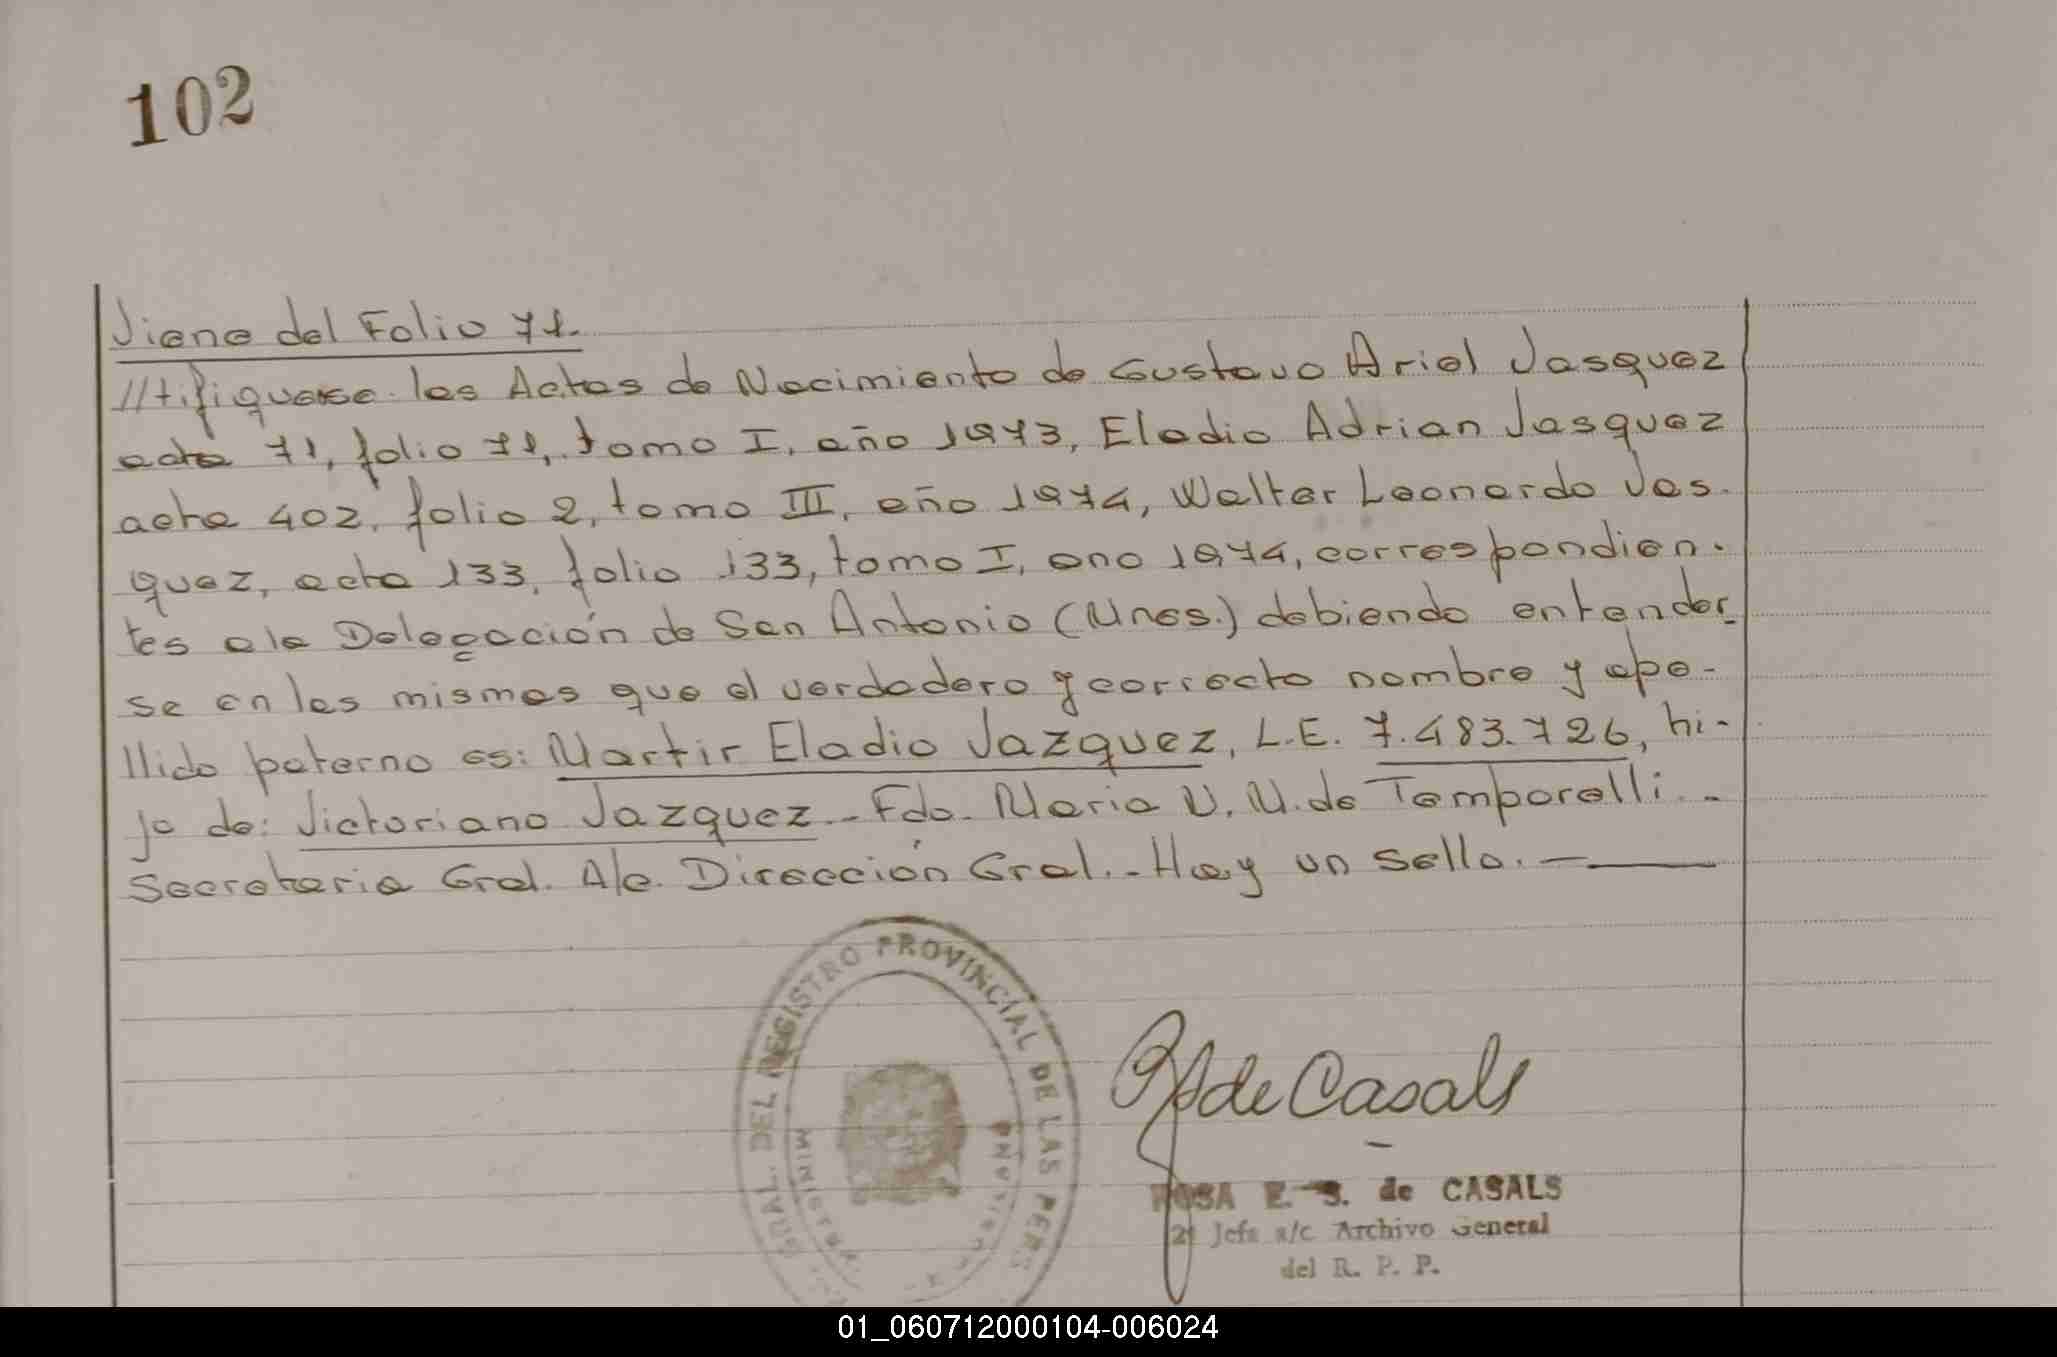 102
Viene del Folio 71.
///tifiquese las Actas de Nacimiento de Gustavo Ariel Vasquez
acta 71, folio 71, tomo I, año 1973, Eladio Adrian Vasquez
acta 402, folio 2, tomo III, año 1974, Walter Leonardo Vas-
quez, acta 133, folio 133, tomo I, ano 1974, correspondien-
tes a la Delegación de San Antonio (Mnes.) debiendo entender
se en las mismas que el verdadero y correcto nombre y ape-
llido paterno es: Martir Eladio Vazquez, L.E. 7.483.726, hi-
jo de: Victoriano Vazquez.- Fdo. Maria N. M. de Temporelli.-
Secretaria Gral. A/c. Dirección Gral.- Hay un sello. —
GRAL. DEL REGISTRO PROVINCIAL DE LAS PERS
de Casals
ROSA E. S. de CASALS
2ª Jefa a/c Archivo General
del R. P. P.
01_060712000104-006024